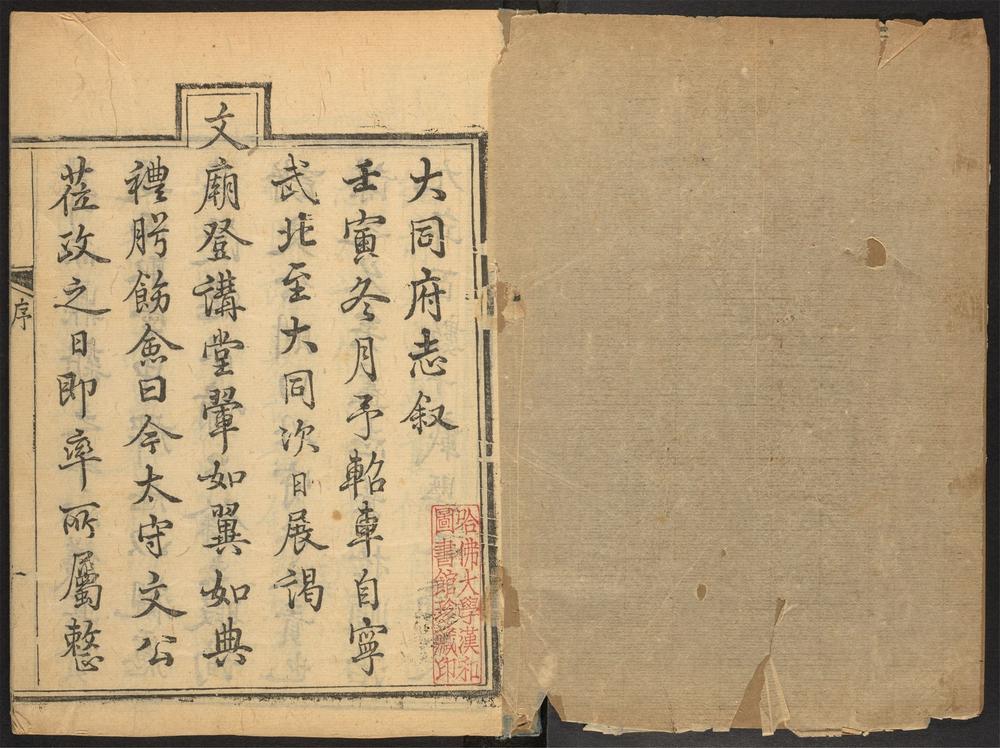 大同府志叙
壬寅冬月予軺車自寧
武北至大同次日展謁
文廟登講堂翬如翼如典
禮肹飭僉曰今太守文公
莅政之日即率所屬整
序
哈佛大學漢和
圖書館珍藏印